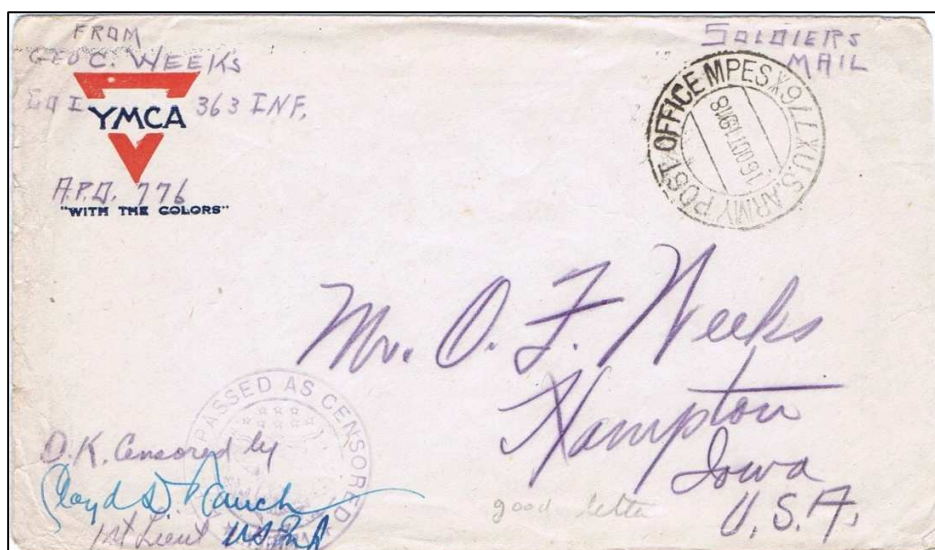 FROM
GEO C. WEEKS
Co I 363 INF.
YMCA
A.P.O. 776
"WITH THE COLORS"
SOLDIERS
MAIL
U.S. ARMY POST OFFICE MPES X 776 X
16 OCT 1918
Mr. O. F. Weeks
Hampton
Iowa
U.S.A.
PASSED AS CENSORED
O.K. Censored by
Lloyd D.
1st Lieut
good letter